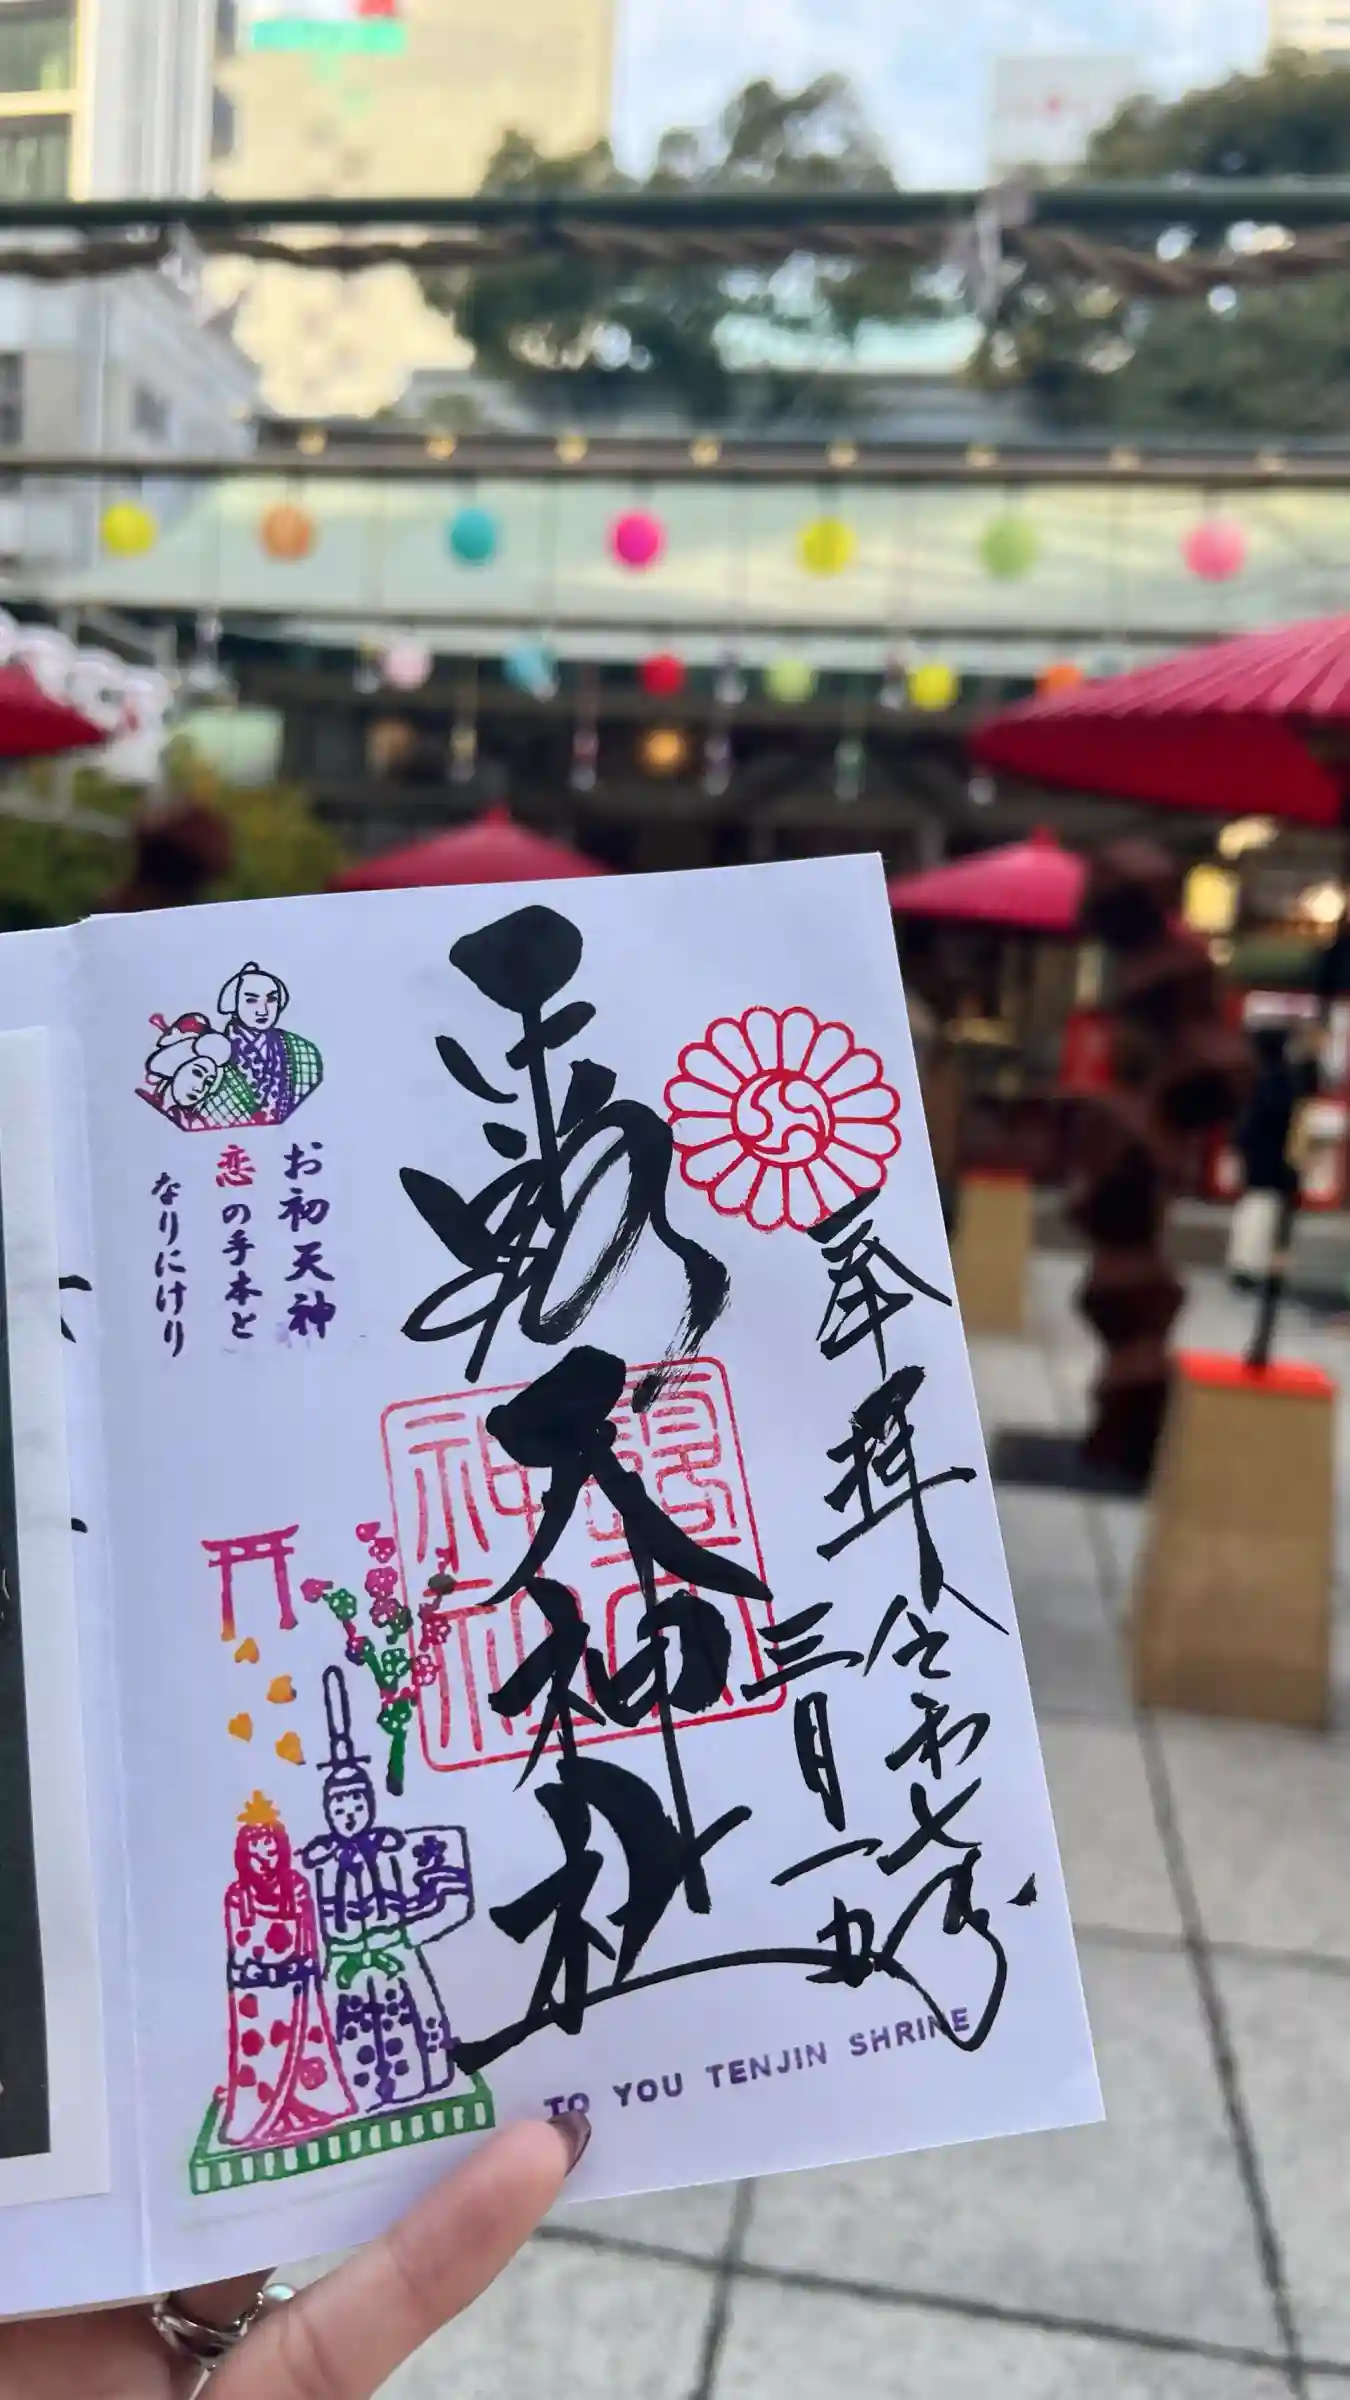 奉拝
令和七年
三月一
露天神社
露天
神社
お初天神
恋の手本と
なりにけり
TO YOU TENJIN SHRINE